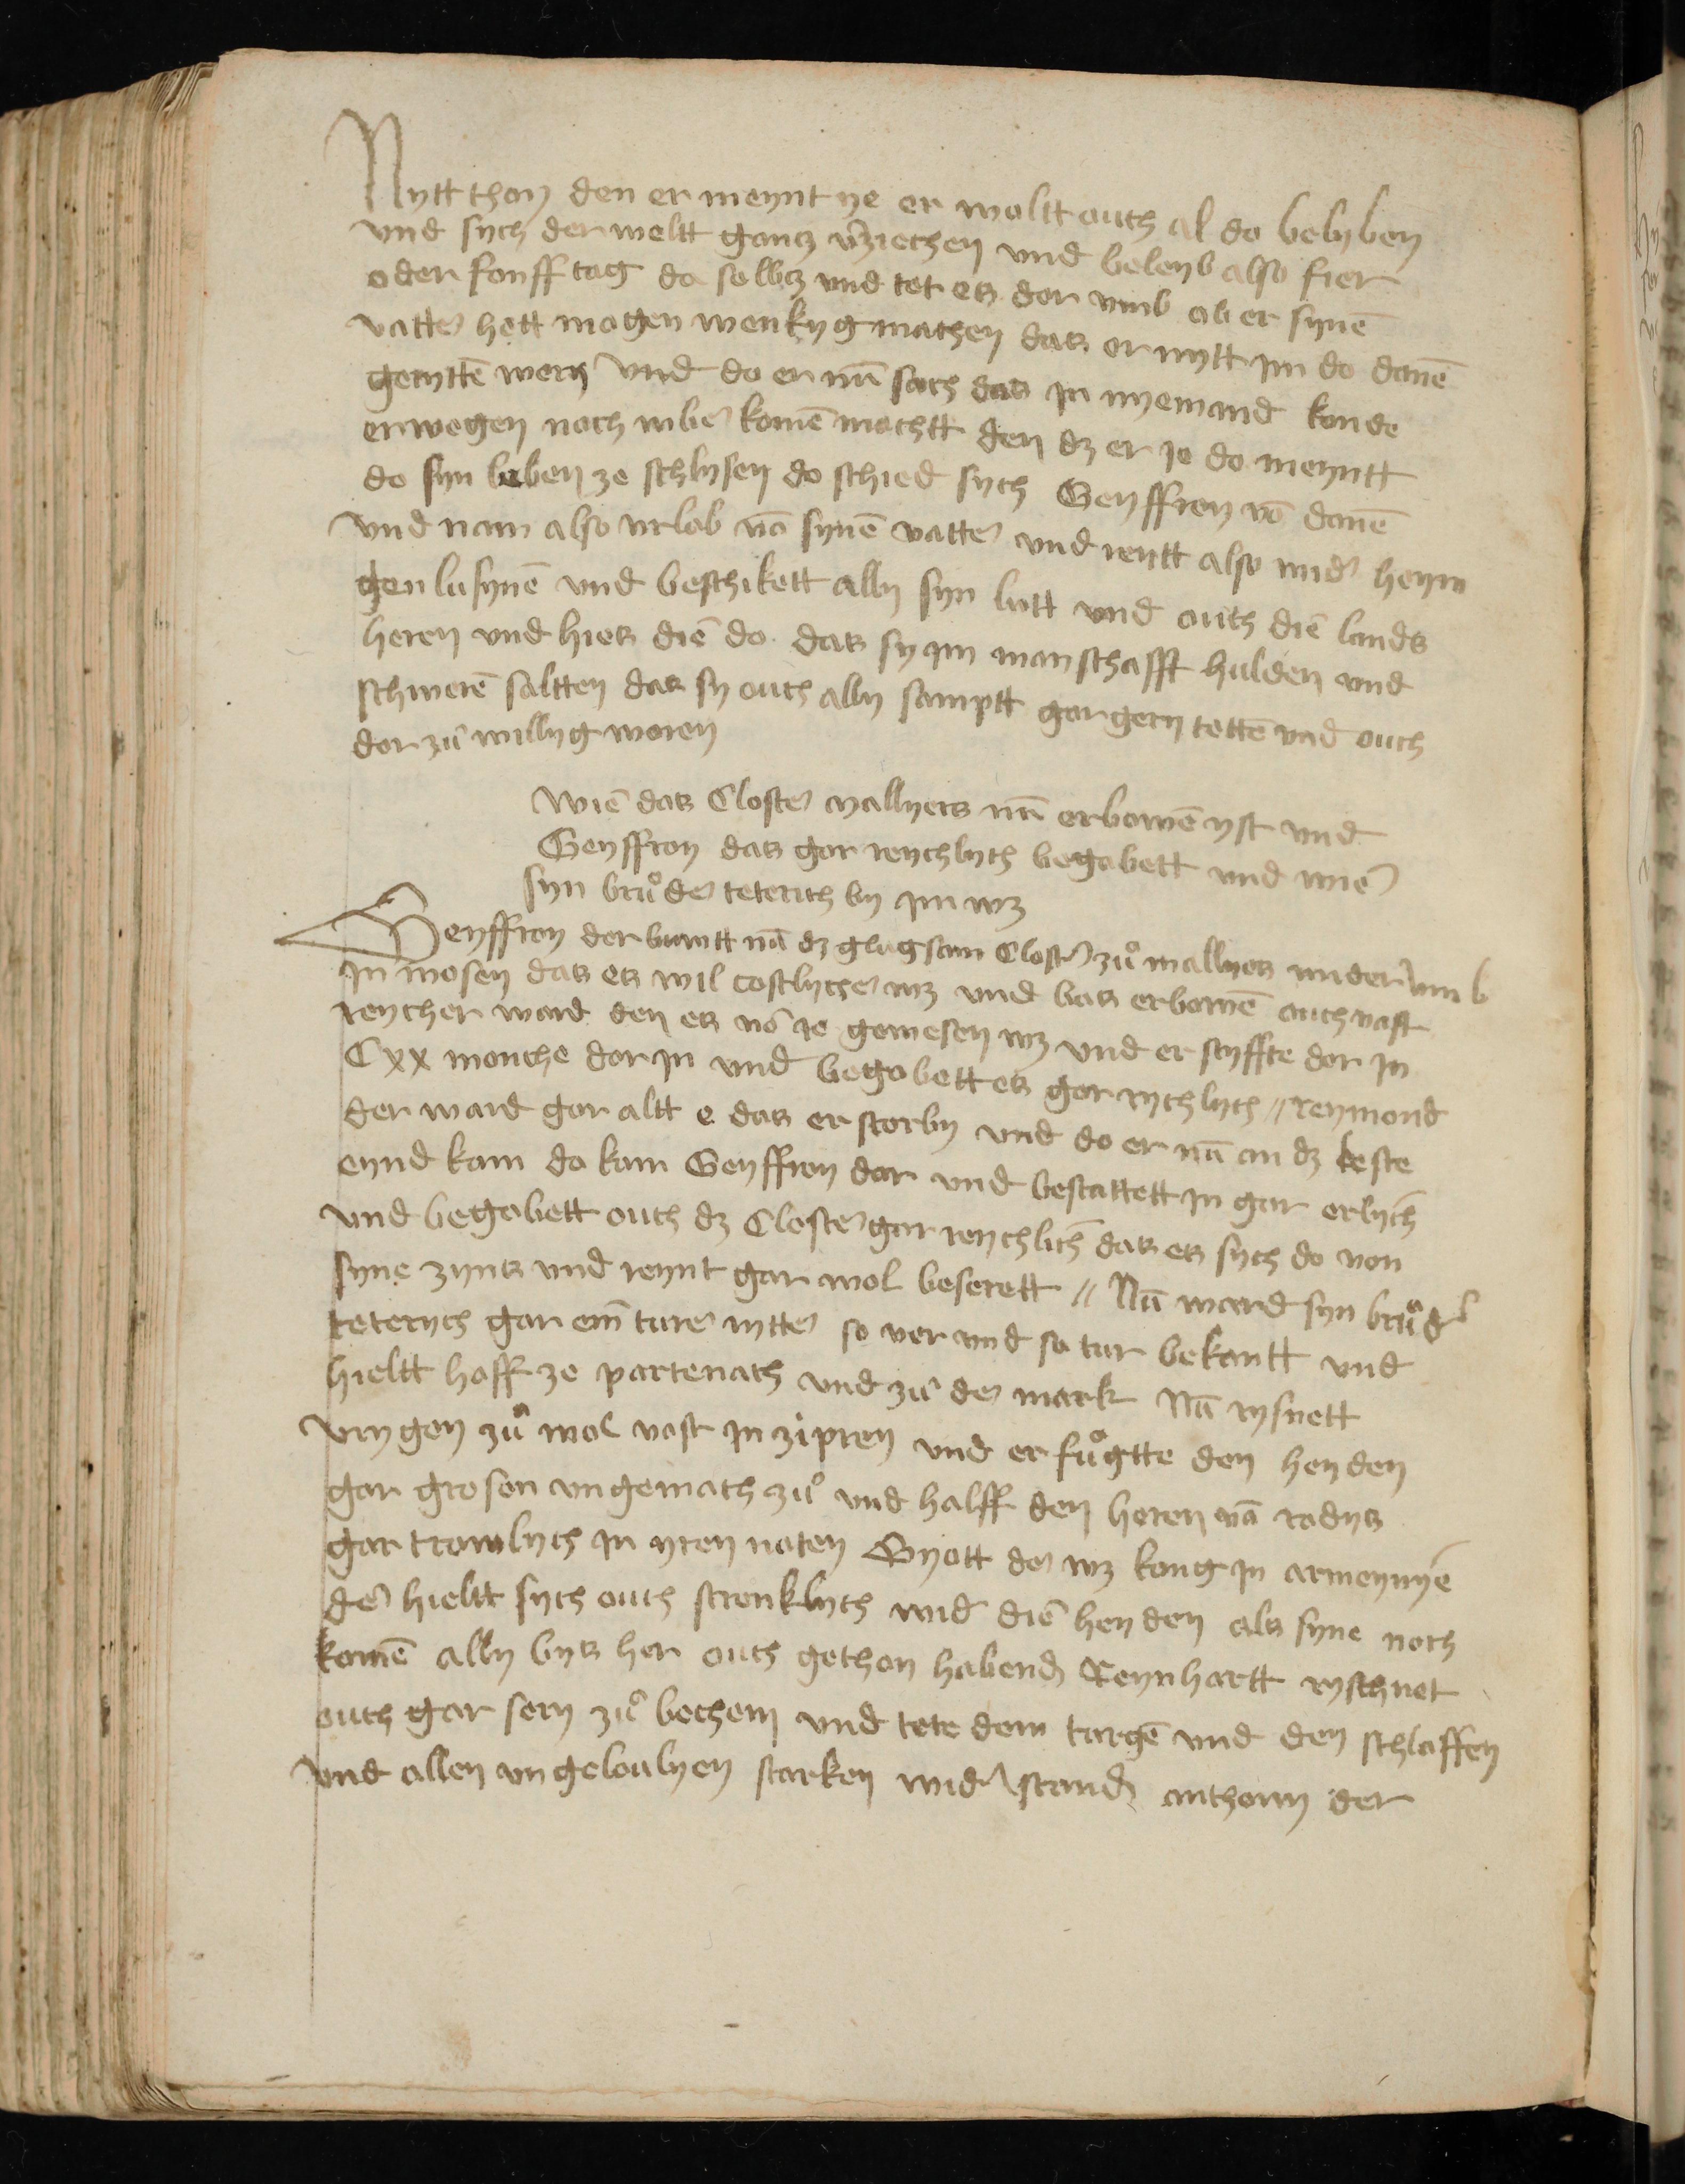 Nytt thon den er meynt ye er woltt ouch al do belyben
vnd sych der weltt gantz v̄ziechen vnd beleyb also fier
oder fonff tag do selbtz vnd tet es dor vmb ob er synē
vatter hett mogen wenkyg machen das er mytt jm do danē
gerytē wery vnd do er nū sach das jn nyemand konde
erwegen noch uiber komē mochtt den dz er je do meyntt
do syn leben ze schlysen do schied sych Geyffroy vō danē
vnd nam also vrlob vō synē vatter vnd reytt also wider heym
gen lusynē vnd beschikett ally syn lutt vnd ouch diē lands
heren vnd hies diē do das sy jm manschafft hulden vnd
schwerē soltten das sy ouch ally samptt gar gern tettē vnd ouch
dor zuͦ willyg woren
Wie das Closter mallyers nū erbowē yst vnd
Geyffroy das gar reychlych begabett vnd wie
syn bruͦder teterich by jm wz
Geyffroy der buwtt nū dz glugsam Closter zuͦ mallyes wider vmb
jn mosen das es wil costlycher wz vnd bas erbowē ouch vast
reycher ward den es vō je gewesen wz vnd er styffte dor jn
Cxx monche dor jn vnd begobett es gar rychlych // reymond
der ward gor altt e das er storby vnd do er nū an dz leste
eynd kam do kam Geyffroy dar vnd bestattett jn gar erlych
vnd begobett ouch dz Closter gar reychlich das es sych do von
syne zynts vnd reynt gar wol beserett // Nū ward syn bruͦder
teterych gar ein turer rytter so ver vnd so tur bekantt vnd
hieltt hoff ze partenach vnd zuͦ der mark Nū rysnett
vrygen zuͦ mol vast jn zipren vnd er fuͦgtte den heyden
gar grosen vngemach zuͦ vnd halff den heren vō rodys
gar trowlych jn yren noten Gyott der wz kong jn armeynyē
der hieltt sych ouch strenklych wider diē heyden als syne noch
komē ally bys her ouch gethon habend Reynhartt ryschnet
ouch gar sery zuͦ bechem vnd tete dem torgē vnd den schlaffen
vnd allen vngeloubyen starken wider stand anthony der